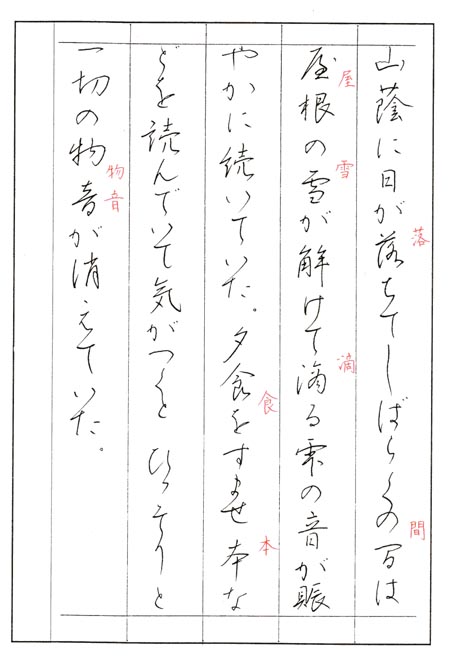 山蔭に日が落ちてしばらくの間は
屋根の雪が解けて滴る雫の音が賑
やかに続いていた。夕食をすませ本な
どを読んでいて気がつくとひっそりと
一切の物音が消えていた。
落
間
屋
雪
滴
食
本
物音